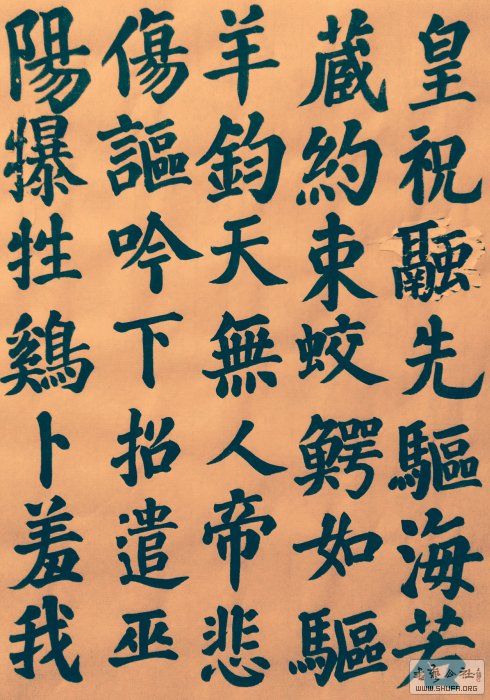 皇祝融先驅海若
蔵約束蛟鰐如驅
羊鈞天無人帝悲
傷謳吟下招遣巫
陽犦牲鷄卜羞我
WWW.SHUFA.ORG